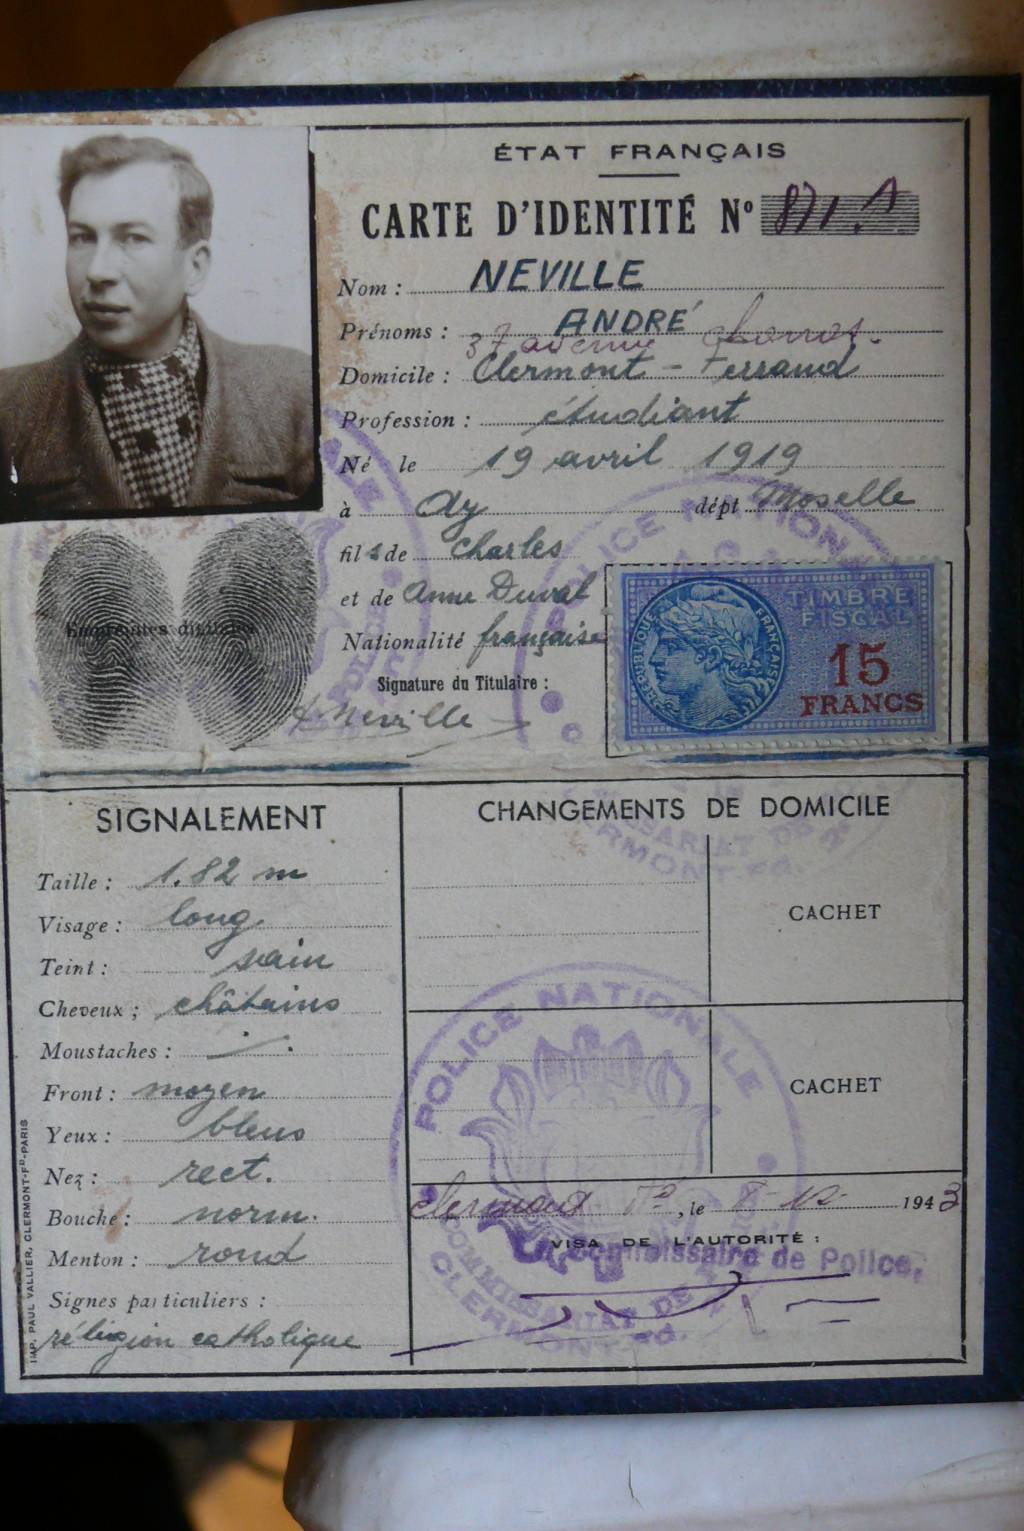 ÉTAT FRANÇAIS
CARTE D'IDENTITÉ Nº 871
Nom : NEVILLE
Prénoms : ANDRÉ
37 avenue
Domicile : Clermont - Ferrand
Profession : étudiant
Né le 19 avril 1919
à Ay dépt Moselle
fils de Charles
et de Anne Duval
Nationalité française
Empreintes digitales
Signature du Titulaire :
A Neville
RÉPUBLIQUE FRANÇAISE
TIMBRE
FISCAL
15
FRANCS
POLICE NATIONALE
SIGNALEMENT
Taille : 1.82 m
Visage : long
Teint : sain
Cheveux ; châtains
Moustaches :
Front : moyen
Yeux : bleus
Nez : rect.
Bouche : norm.
Menton : rond
Signes particuliers :
réligion catholique
IMP. PAUL VALLIER, CLERMONT-Fᴰ-PARIS
CHANGEMENTS DE DOMICILE
CACHET
CACHET
POLICE NATIONALE
COMMISSARIAT DE
CLERMONT-Fd.
Clermont Fd, le 8-12- 1943
VISA DE L'AUTORITÉ :
Commissaire de Police,